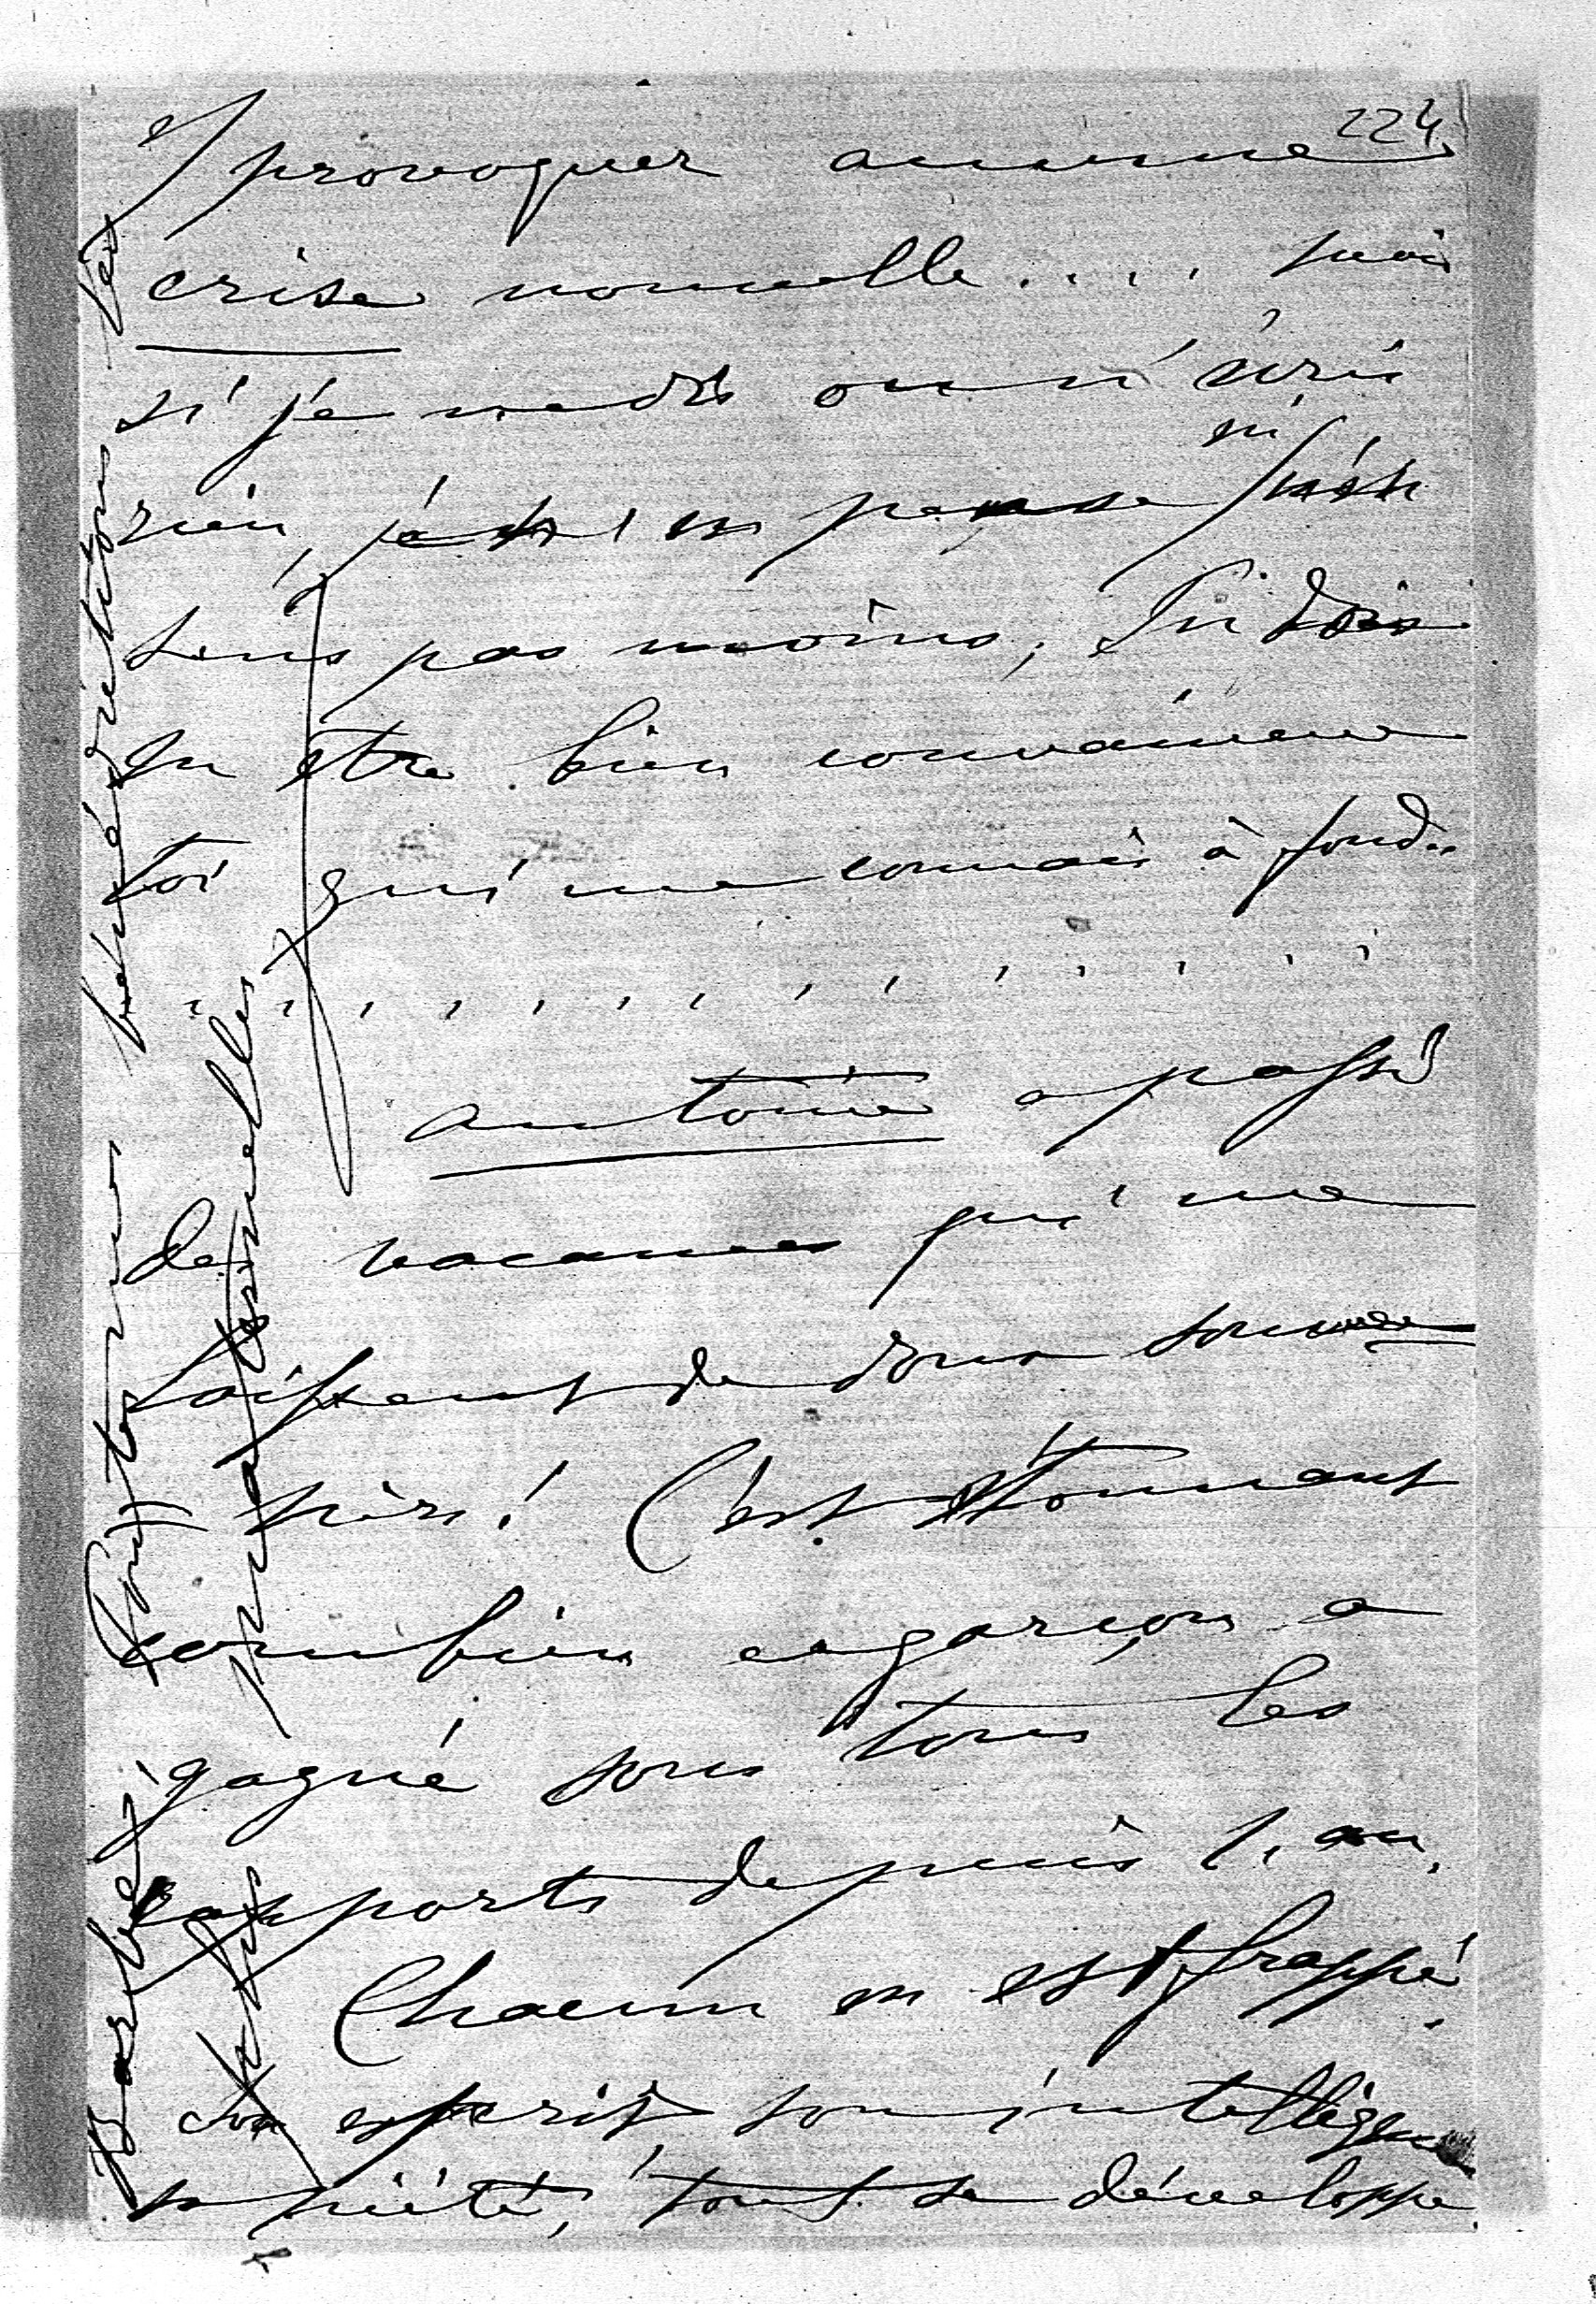 224
provoquer aucune
crise nouvelle.... mais
si je ne dis ou n'écris
rien, je n'en pense ni
sens pas moins, Tu dois
en être bien convaincue
toi qui me connais à fond..
. . . . . . . . . . . . . . .
Antoine a passé
des vacances qui me
laissent de doux souve
nirs! C'est étonnant
combien ce garçon a
gagné sous tous les
rapports depuis 1. an.
Chacun en est frappé.
Son esprit, son intelligence
sa piété, tout se développe
bénédictions
paternelles